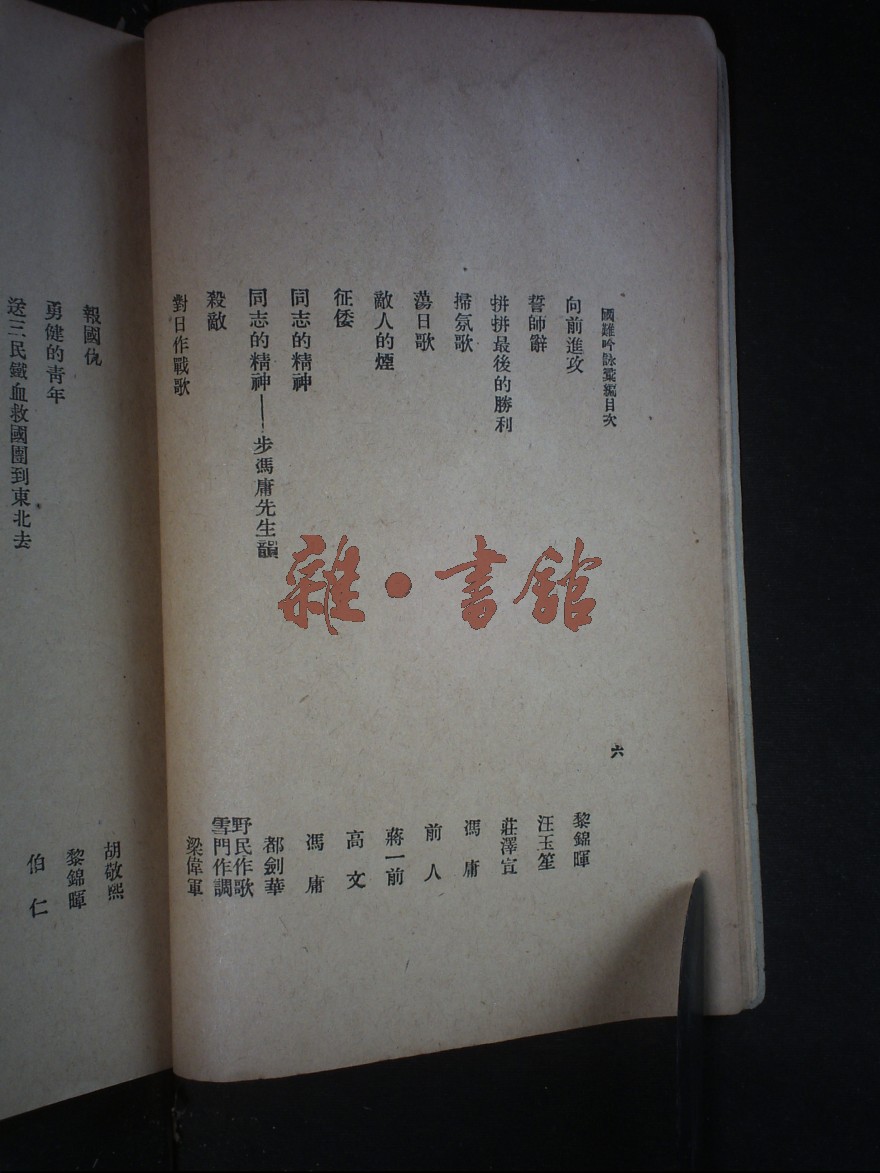 國難吟詠彙編目次
六
向前進攻 黎錦暉
誓師辭 汪玉笙
拼拼最後的勝利 莊澤宣
掃氛歌 馮庸
蕩日歌 前人
敵人的煙 蔣一前
征倭 高文
同志的精神 馮庸
同志的精神——步馮庸先生韻 都劍華
殺敵 野民作歌 雪門作調
對日作戰歌 梁偉軍
報國仇 胡敬熙
勇健的青年 黎錦暉
送三民鐵血救國團到東北去 伯仁
雜·書館